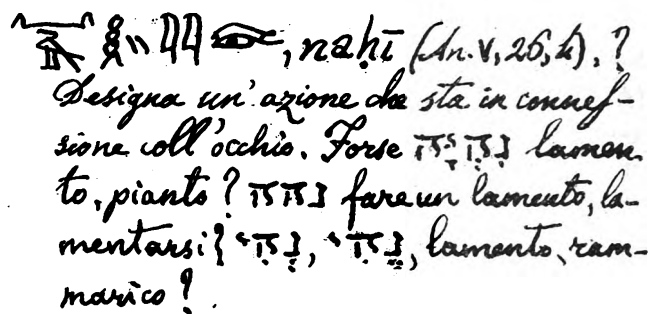 , naḥī (An. V, 26, 4). ?
Designa un' azione che sta in connes-
sione coll' occhio. Forse נִהְיָה lamen-
to, pianto? נהה fare un lamento, la-
mentarsi? נְהִי, נֶהִי, lamento, ram-
marico?